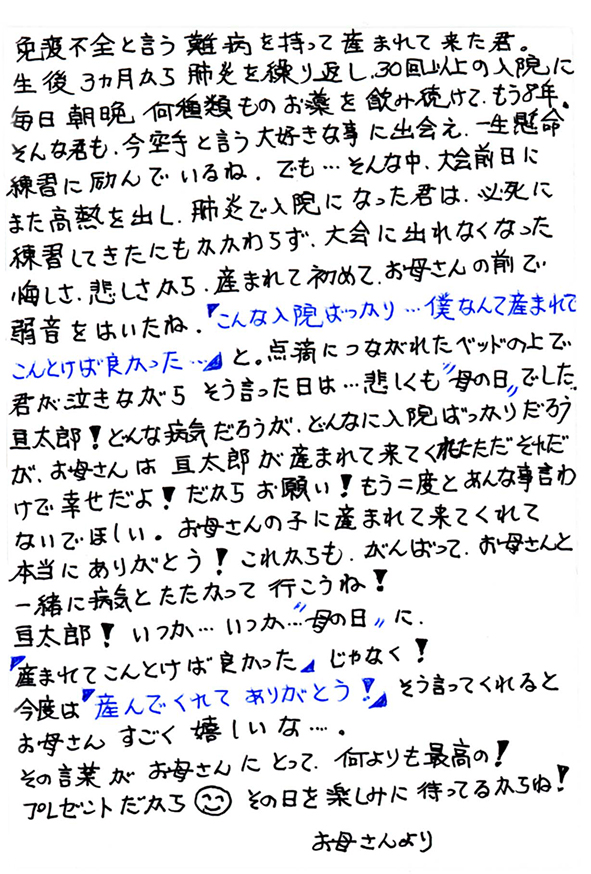 免疫不全と言う難病を持って産まれて来た君。
生後3ヵ月から肺炎を繰り返し、30回以上の入院に
毎日朝晩何種類ものお薬を飲み続けて、もう8年。
そんな君も、今空手と言う大好きな事に出会え、一生懸命
練習に励んでいるね。でも…そんな中、大会前日に
また高熱を出し、肺炎で入院になった君は、必死に
練習してきたにもかかわらず、大会に出れなくなった
悔しさ、悲しさから、産まれて初めて、お母さんの前で
弱音をはいたね。『こんな入院ばっかり…僕なんて産まれて
こんとけば良かった…』と。点滴につながれたベッドの上で
君が泣きながら そう言った日は…悲しくも〝母の日〟でした。
亘太郎!どんな病気だろうが、どんなに入院ばっかりだろう
が、お母さんは亘太郎が産まれて来てくれたただそれだ
けで幸せだよ!だからお願い!もう二度とあんな事言わ
ないでほしい。お母さんの子に産まれて来てくれて
本当にありがとう!これからも、がんばって、お母さんと
一緒に病気とたたかって行こうね!
亘太郎!いつか…いつか…〝母の日〟に、
『産まれてこんとけば良かった』じゃなく!
今度は『産んでくれてありがとう!』そう言ってくれると
お母さんすごく嬉しいな…。
その言葉がお母さんにとって、何よりも最高の!
プレゼントだから😊その日を楽しみに待ってるからね!
お母さんより